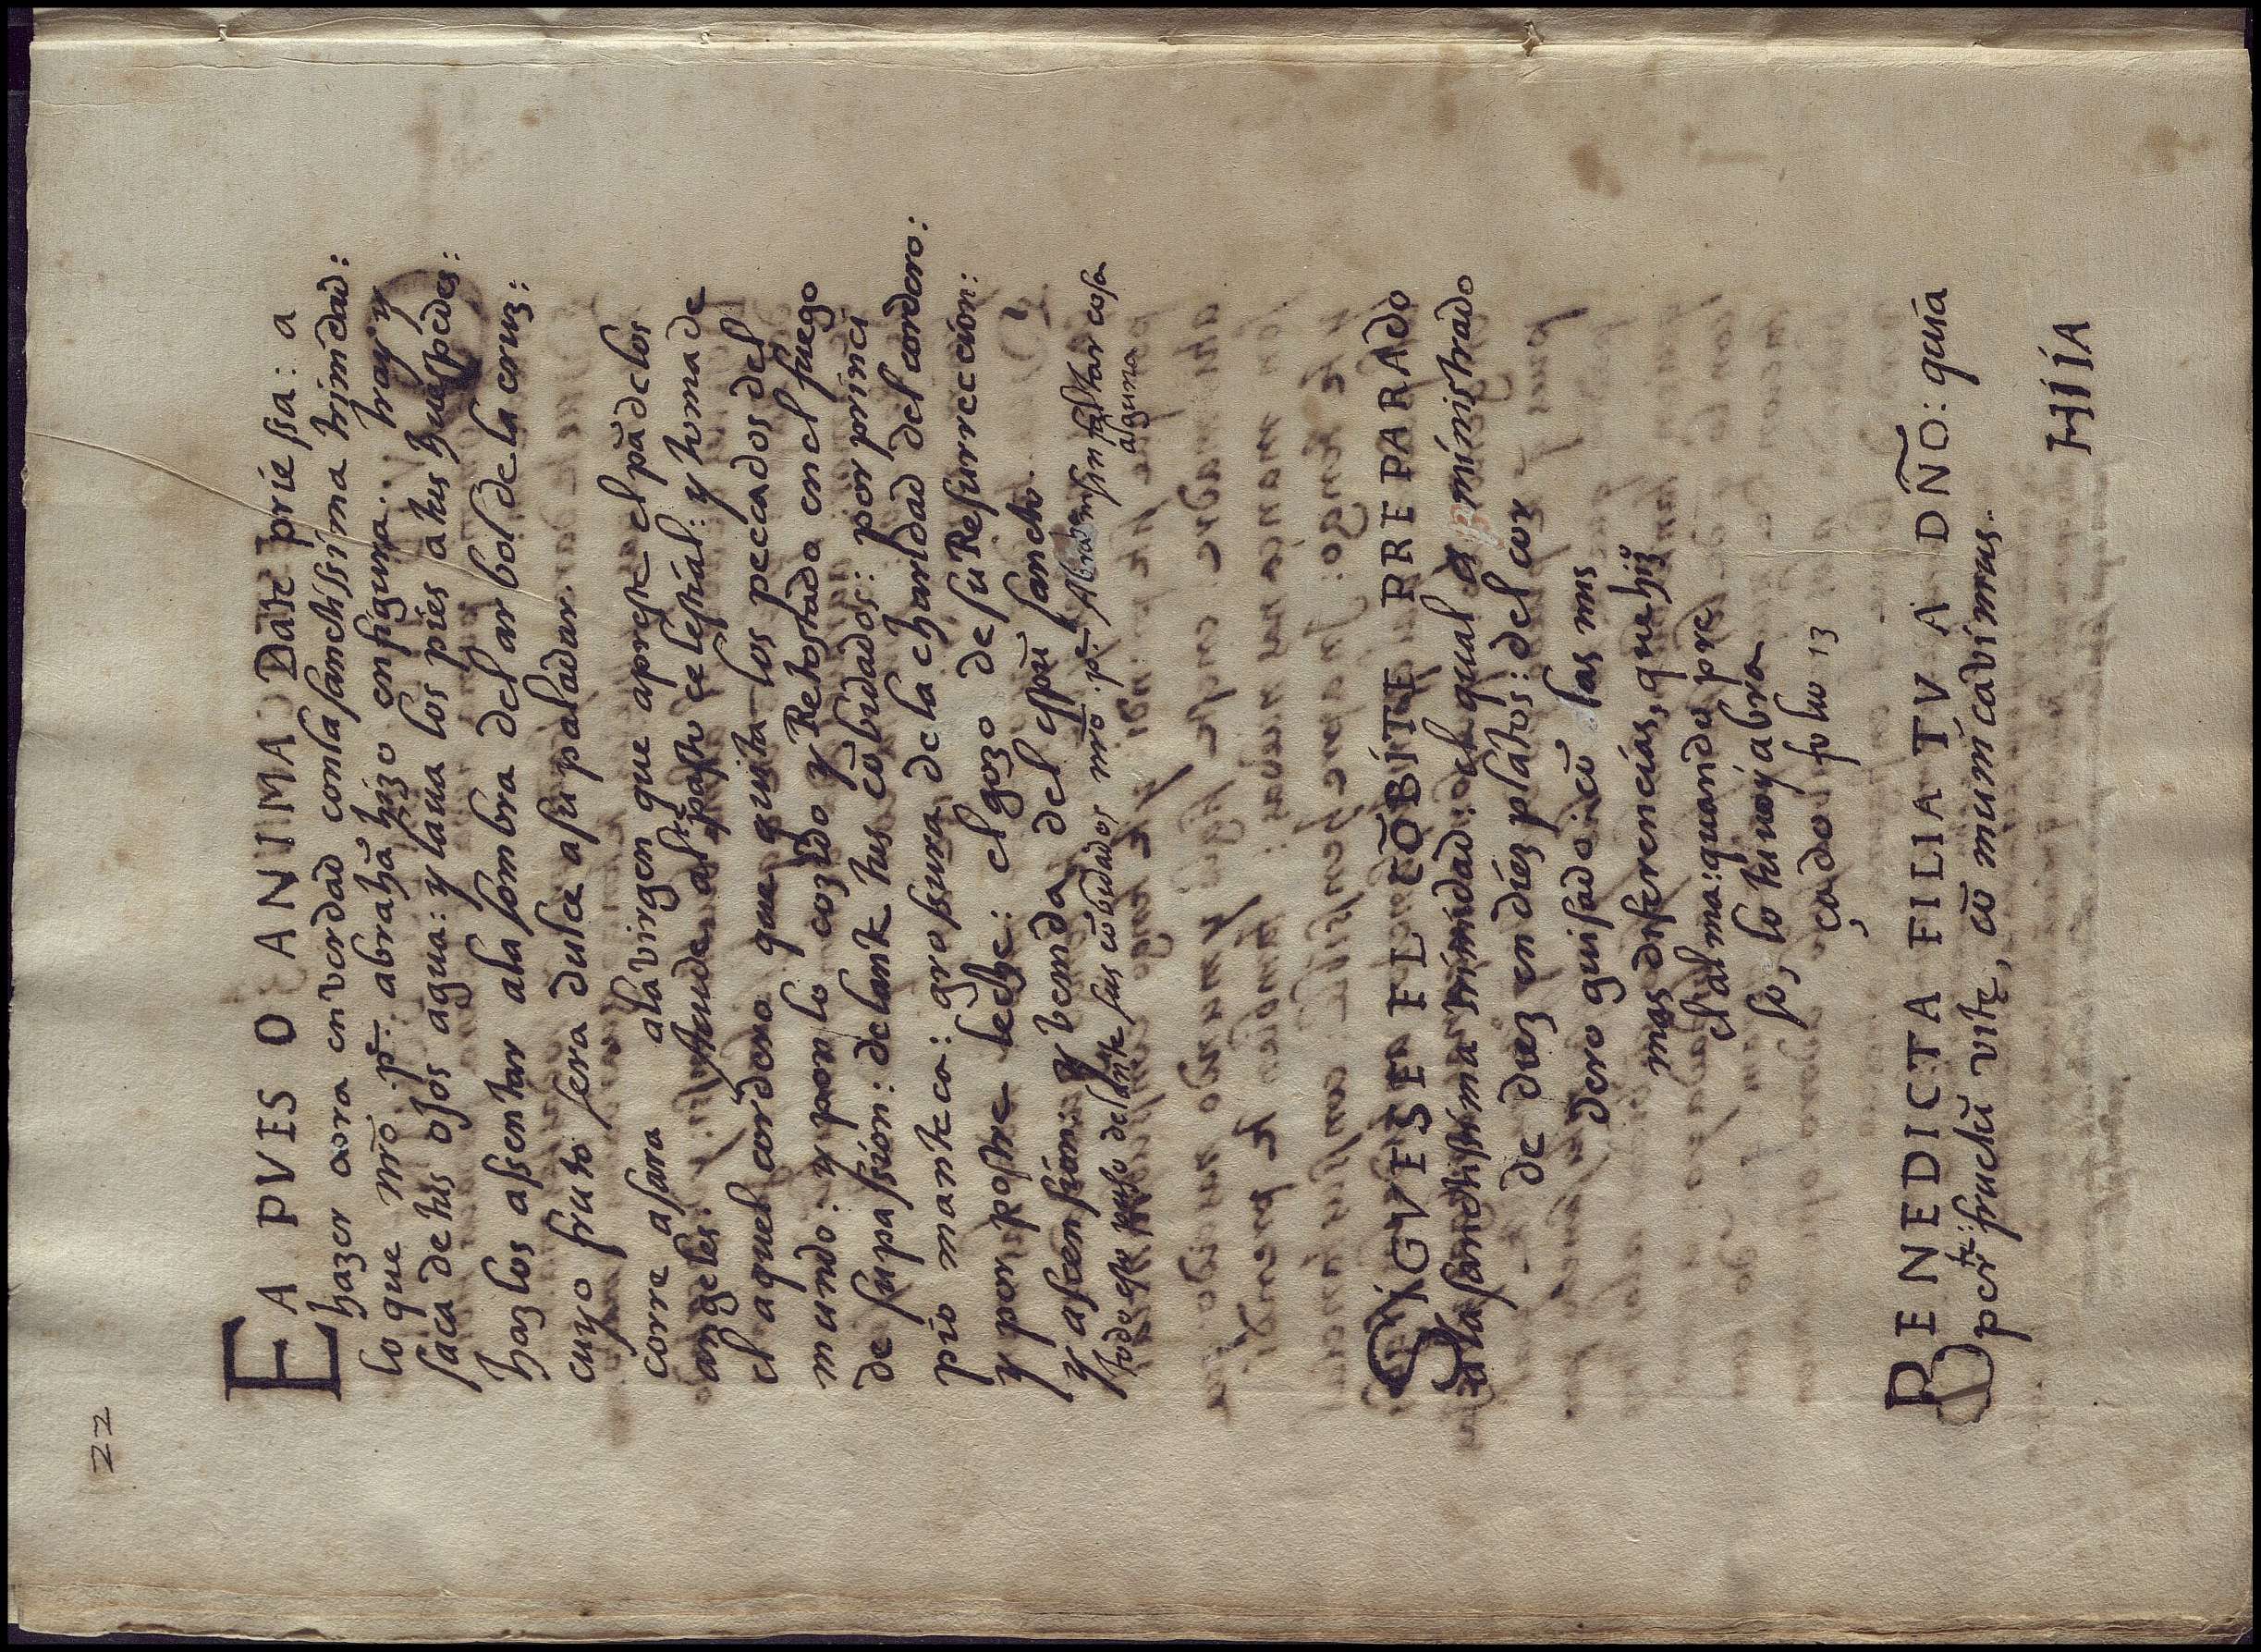 22
EA PVES O ANIMA Date príessa: a
hazer aora en verdad con la sanctíssima trinidad:
lo que nr̃o .pe. abrahã hizo en figura. tray y
saca de tus ojos agua: y laua los píes a tus huespedes:
haz los assentar a la sombra del arbol de la cruz:
cuyo fruto sera dulce a su paladar.
corre a sara a la virgen que apreste el pã de los
angeles: pasto celestíal: y toma de
el aquel cordero que quita los peccados del
mundo: y pon lo cozído y Retostado en el fuego
de su passíon: delante tus cõbídados: por prínci
pío manteca: grossura de la charídad del cordero:
y por postre leche: el gozo de su Resurreccíon:
y ascensíon: y venída del espũ sancto.
todo esto puso delante sus cõbídados nr̃o .pe. Abrahã sin faltar cosa
alguna
SÍGVESE EL CÕBÍTE PREPARADO
a la sanctíssima trínídad: el qual es mínístrado
de díez en díez platos: del cor
dero guísado: cõ las mis
mas díferencías, que hízo
el alma: quando pre
so, lo tuvo, y abra
çado solo 13
BENEDICTA FILIA TV A DÑO: quía
per te: fructũ vitę, cõmunícavímus.
HÍÍA